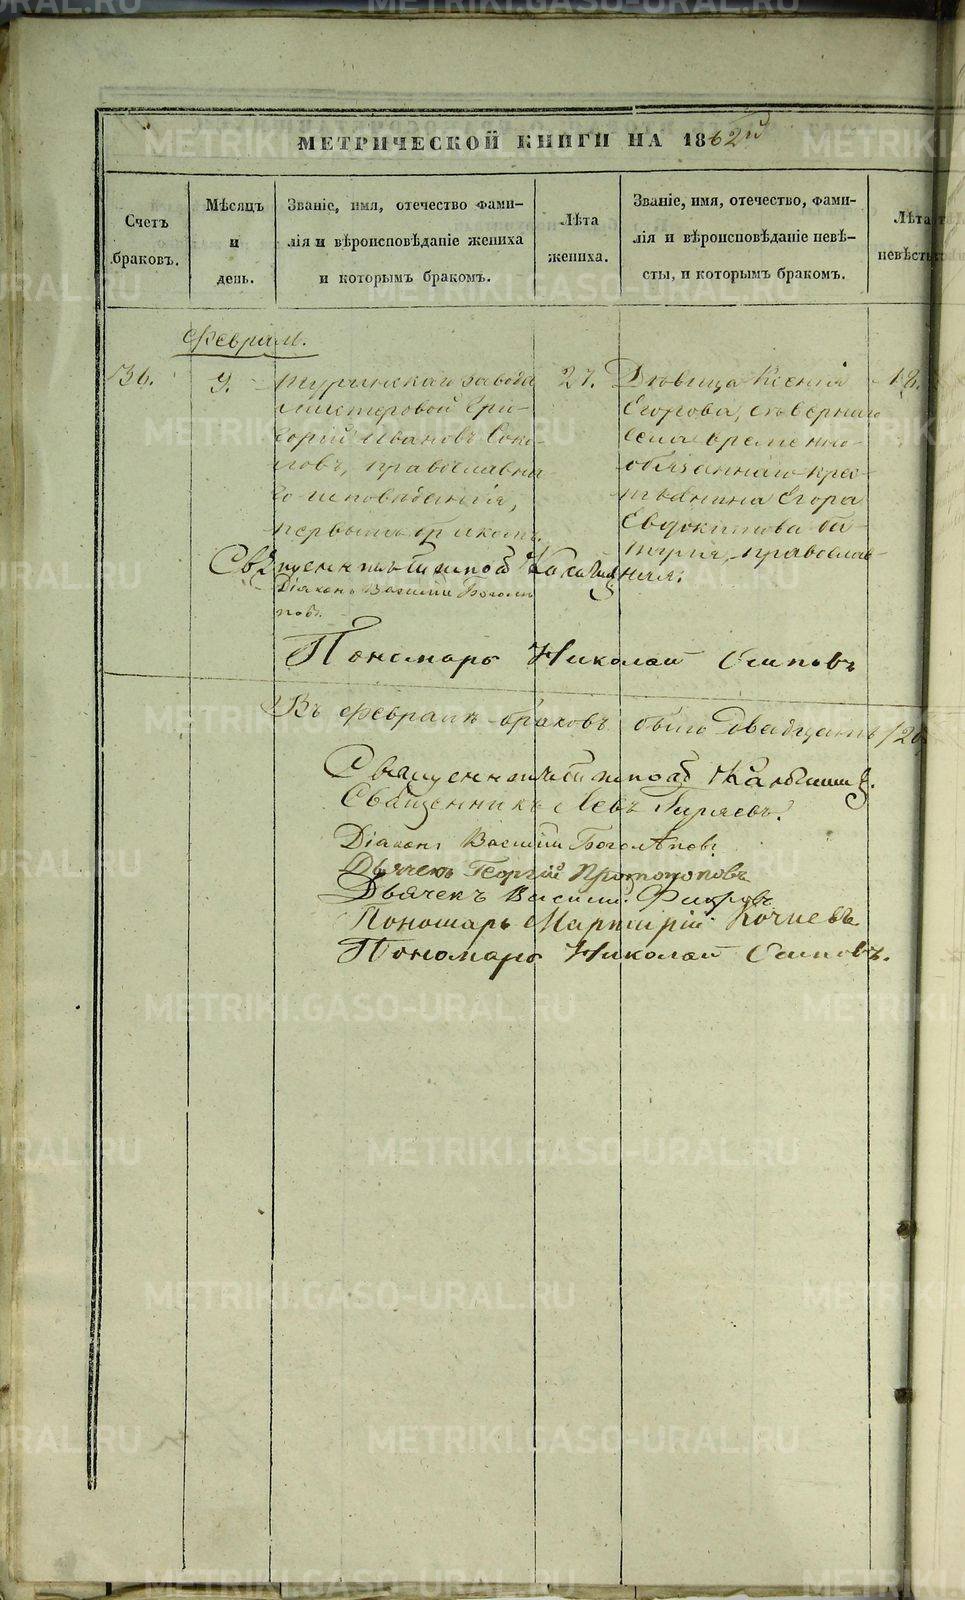 METRIKI.GASO-URAL.RU
МЕТРИЧЕСКОЙ КНИГИ НА 1862й
Счетъ браковъ.
Мѣсяцъ и день.
Званіе, имя, отечество фами-
лія и вѣроисповѣданіе жениха
и которымъ бракомъ.
Лѣта жениха.
Званіе, имя, отечество, фами-
лія и вѣроисповѣданіе невѣ-
сты, и которымъ бракомъ.
Лѣта невѣсты
Февраль.
36.
9.
Туринскаго завода
мастеровой Гри-
горій Ивановъ Соко-
ловъ, православна-
го исповѣданія,
первымъ бракомъ.
27.
Дѣвица Ксенія
Егорова,
села временно-
обязаннаго крес-
тьянина Егора
Евдокимова
православ-
ная.
18.
Священникъ
Діаконъ Василій Боголѣ
повъ.
Пономарь Николай Осиповъ
Въ Февралѣ браковъ было двадцать /20
Священникъ
Священникъ Левъ
Діаконъ Василій Боголѣповъ
Дьячекъ Георгій Протопоповъ
Дьячекъ Василій
Пономарь Мартирій Кочневъ
Пономарь Николай Осиповъ.